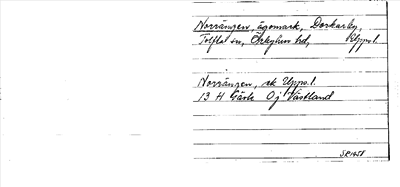 Norrängen, ägomark, Darkarby,
Tolfta sn, Örbyhus hd, Upps.l.
Norrängen, sk Upps.l.
13 H Gävle Oj Västland
SR 1958